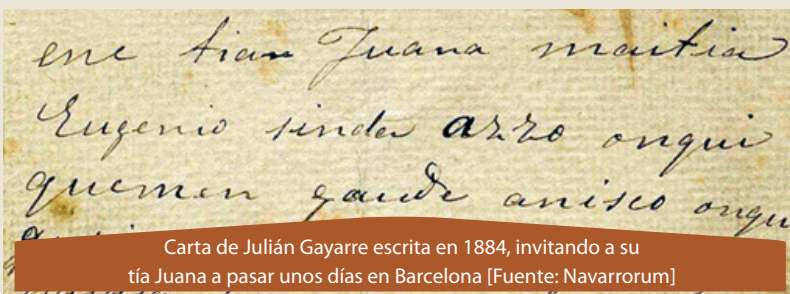 ene tian Juana maitia
Eugenio jinda azzo ongui
quemen gaude anisco ongui
Carta de Julián Gayarre escrita en 1884, invitando a su
tía Juana a pasar unos días en Barcelona [Fuente: Navarrorum]